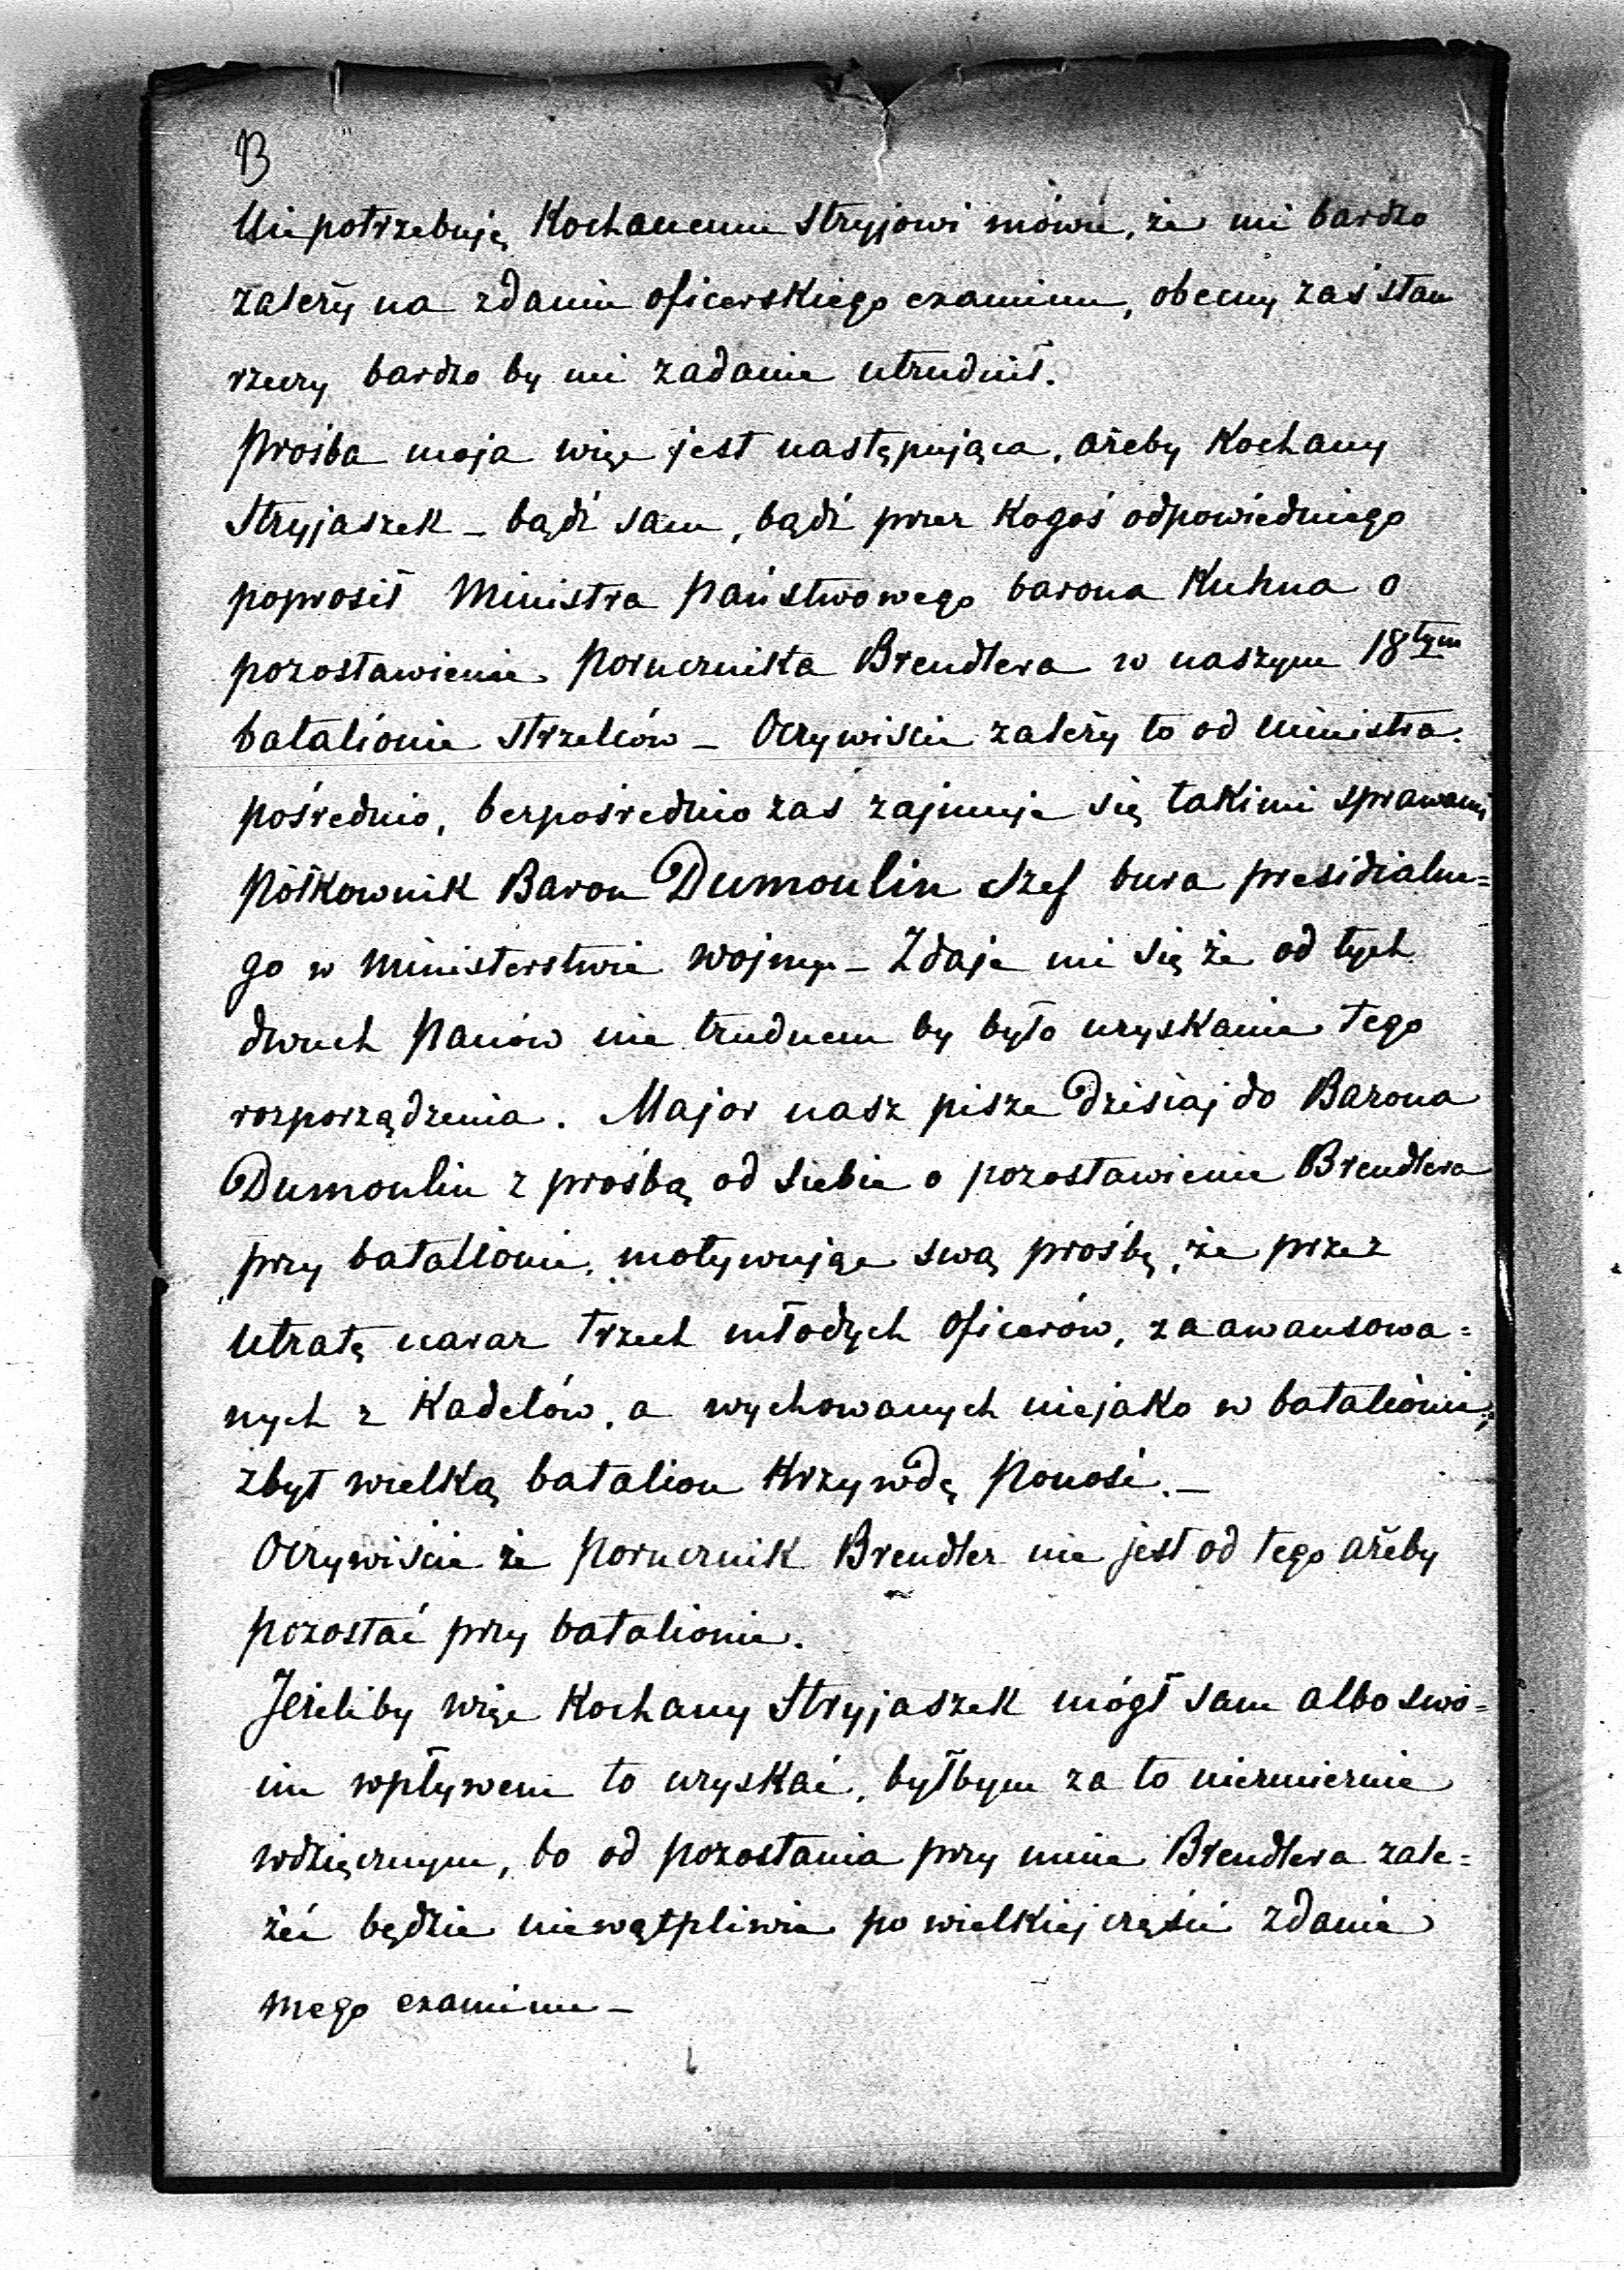 13
Nie potrzebuję Kochanemu Stryjowi mówić, że mi bardzo
zależy na zdaniu oficerskiego examinu, obecny zaś stan
rzeczy bardzo by mi zadanie utrudnił.
Prośba moja więc jest następująca, ażeby Kochany
Stryjaszek – bądź sam, bądź przez Kogoś odpowiedniego
poprosił Ministra Państwowego barona Kuhna o
pozostawienie Porucznika Brendlera w naszym 18tym
batalionie strzelców – Oczywiście zależy to od Ministra
pośrednio, bezpośrednio zaś zajmuje się takimi sprawami
Półkownik Baron Dumoulin Szef bura presidialne=
go w Ministerstwie Wojny – Zdaje mi się że od tych
dwuch Panów nie trudnem by było uzyskanie tego
rozporządzenia. Major nasz pisze dzisiaj do Barona
Dumoulin z prośbą od siebie o pozostawienie Brendlera
przy batalionie, motywując swą prośbę, że przez
utratę naraz trzech młodych oficerów, zaawansowa=
nych z Kadetów, a wychowanych niejako w batalionie,
zbyt wielką batalion Krzywdę Ponosi. –
Oczywiście że Porucznik Brendler nie jest od tego ażeby
pozostać przy batalionie.
Jeżeliby więc Kochany Stryjaszek mógł sam albo swo=
im wpływem to uzyskać, byłbym za to niezmiernie
wdzięcznym, bo od pozostania przy mnie Brendlera zale=
żeć będzie niewątpliwie po wielkiej części zdanie
mego examinu –